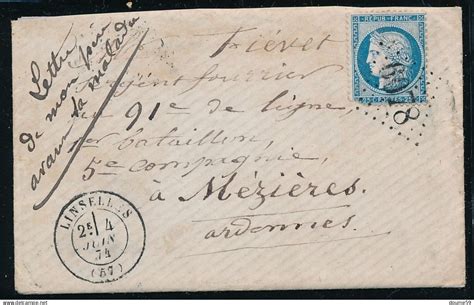 Lettre
de mon père
avant sa maladie
Tiévet
Sergent fourrier
au 91e de ligne,
1er bataillon,
5e compagnie,
à Mézières.
ardennes.
REPUB. FRANC.
LINSELLES
2E 4
JUIN
74
(57)